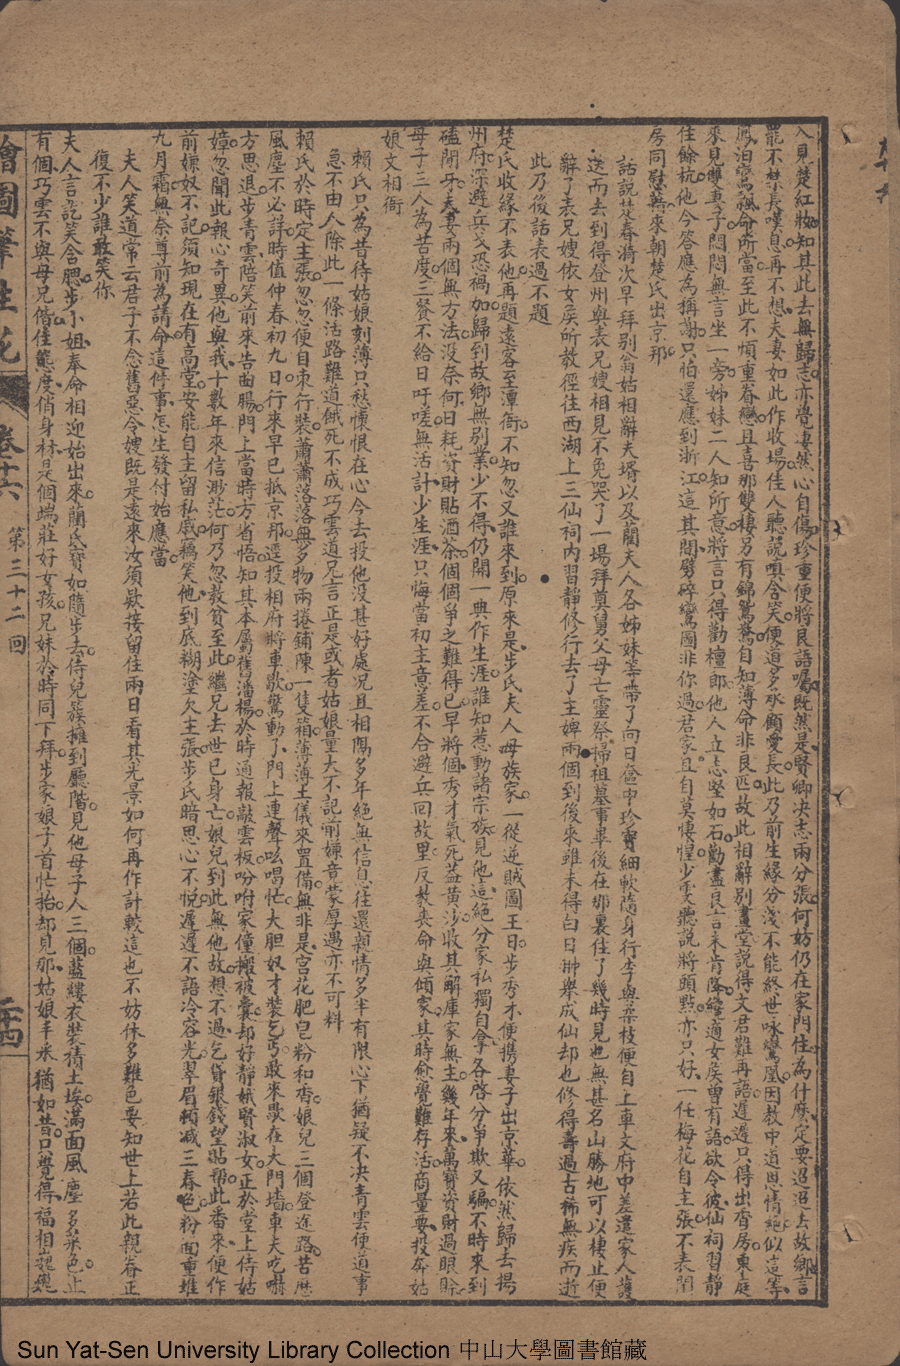 入見楚紅妝知其此去無歸志亦覺凄然心自傷珍重便將良語囑既然是賢卿决志兩分張何妨仍在家門住為什麽定要迢迢去故鄉言
罷不禁長嘆息再不想夫妻如此作收場佳人聽說嗔含笑便道多承顧愛長此乃前生緣分淺不能終世咏鸞凰因教中道恩情絶似這等
鳳泊鸞飄命所當至此不煩重眷戀且喜那雙棲另有錦鴛鴦自知薄命非良匹故此相辭別畫堂說得文君難再語遲遲只得出香房東庭
來見雙妻子悶悶無言坐一旁姊妹二人知所意將言只得勸檀郎他人立志堅如石勸盡良言未肯降纔適女矦曽有語欲令彼仙祠習靜
住餘杭他今答應為稱謝只怕還應到浙江這其間劈碎鸞圖非你過君家且自莫悽惶少雯聽說將頭點亦只好一任梅花自主張不表閨
房同慰藉來朝楚氏出京邦
話說楚春漪次早拜別翁姑相辭夫壻以及藺夫人各姊妹等帶了向日奩中珍寶細軟隨身行李與柔枝便自上車文府中差遣家人護
送而去到得登州與表兄嫂相見不免哭了一場拜奠舅父母亡靈祭掃祖墓事畢後在那裏住了幾時見也無甚名山勝地可以棲止便
辭了表兄嫂依女矦所教徑往西湖上三仙祠内習靜修行去了主婢兩個到後來雖未得白日冲舉成仙却也修得壽過古稀無疾而逝
此乃後話表過不題
楚氏收緣不表他再題遠客至潭衙不知忽又誰來到原來是步氏夫人母族家一從逆賊圖王日步秀才便携妻子出京華依然歸去揚
州府深避兵戈恐禍加歸到故鄉無別業少不得仍開一典作生涯誰知惹動諸宗族見他這絕分家私獨自拿各啓分爭欺又騙不時來到
磕閒牙夫妻兩個無方法没奈何日耗資財貼酒茶個個爭之難得已早將個秀才氣死葢黄沙收其解庫家無主幾年來萬寳資財過眼賒
母子三人為苦度三餐不給日吁嗟無活計少生涯只悔當初主意差不合避兵回故里反教喪命與傾家其時愈覺難存活商量要投奔姑
娘文相衙
賴氏只為昔待姑娘刻薄只愁懷恨在心今去投他没甚好處况且相隔多年絕無信息往還親情多半有限心下猶疑不决青雲便道事
急不由人除此一條活路難道餓死不成巧雲道兄言正是或者姑娘量大不記前嫌竟蒙厚遇亦不可料
賴氏於時定主張忽忽便自束行裝蕭蕭落落無多物兩捲鋪陳一隻箱薄薄土儀來置備無非是宫花肥皂粉和香娘兒三個登途路苦歷
風塵不必詳時值仲春初九日行來早已抵京邦逕投相府將車歇驚動了門上連聲吆喝忙大胆奴才裝乞丐敢來歇在大門墻車夫吃嚇
方思退步青雲陪笑前來告曲腸門上當時方省悟知其本屬舊潘楊於時通報敲雲板吩咐家僮搬被囊却好靜娥賢淑女正於堂上侍姑
嫜忽聞此報心奇異他與我十數年來信渺茫何乃忽敎貧至此繼兄去世已身亡娘兒到此無他故想不過乞貸銀錢望貼帮此番來便作
前嫌奴不記須知現在有高堂安能自主留私戚藕笑他到底糊塗欠主張步氏暗思心不悅遲遲不語冷容光翠眉頻减三春色粉面重堆
九月霜無奈尊前為請命這停事怎生發付始應當
夫人笑道常云君子不念舊惡令嫂既是遠來汝須欵接留住兩日看其光景如何再作計較這也不妨休多難色要知世上若此親眷正
復不少誰敢笑你
夫人言訖笑含腮步小姐奉命相迎始出來藺氏寳如隨步去侍兒簇擁到廳階見他母子人三個藍縷衣裝積土埃滿面風塵多菜色止
有個巧雲不與母兄偕佳態度俏身材是個端莊好女孩兄妹於時同下拜步家娘子首忙抬却見那姑娘丰釆猶如昔只覺得福相巍巍
繪圖筆生花
卷十六
第三十二回
Sun Yat-Sen University Library Collection 中山大學圖書館藏